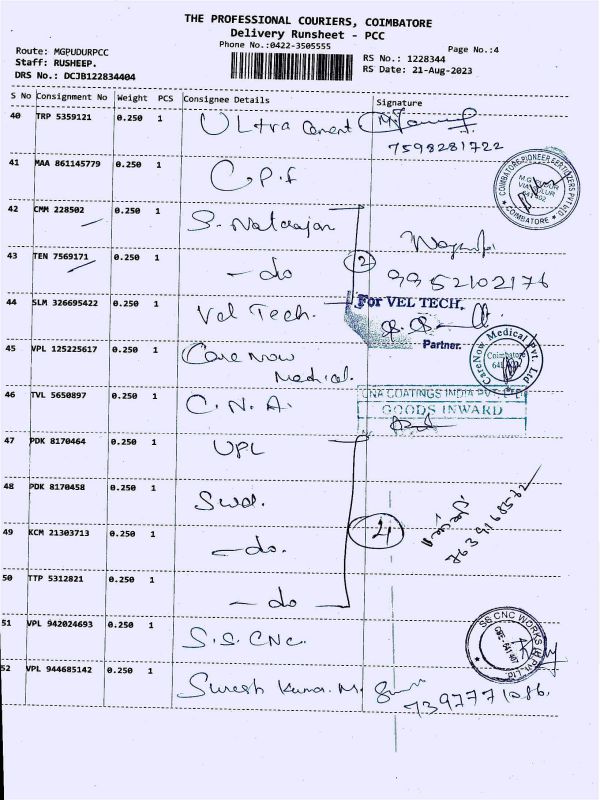 THE PROFESSIONAL COURIERS, COIMBATORE
Delivery Runsheet - PCC
Phone No.:0422-3505555
Page No.:4
Route: MGPUDURPCC
Staff: RUSHEEP.
DRS No.: DCJB122834404
RS No.: 1228344
RS Date: 21-Aug-2023
S No Consignment No Weight PCS Consignee Details Signature
40 TRP 5359121 0.250 1 Ultra Cement
7598281722
41 MAA 861145779 0.250 1 C.P.F
COIMBATORE PIONEER FERTILIZERS PVT LTD.
COIMBATORE
42 CMM 228502 0.250 1 S. Natarajan
43 TEN 7569171 0.250 1 - do
2
9952102176
44 SLM 326695422 0.250 1 Vel Tech.
For VEL TECH,
Partner.
45 VPL 125225617 0.250 1 Care Now
Medical.
CareNow Medical Pvt. Ltd
Coimbatore
46 TVL 5650897 0.250 1 C.N.A.
CNA COATINGS INDIA PVT LTD
GOODS INWARD
47 PDK 8170464 0.250 1 UPL
48 PDK 8170458 0.250 1 Swa.
49 KCM 21303713 0.250 1 - do.
4
50 TTP 5312821 0.250 1 - do
51 VPL 942024693 0.250 1 S.S. CNC.
SS CNC WORKS (I) Pvt. Ltd.
52 VPL 944685142 0.250 1 Suresh Kumar. M.
7397771086.